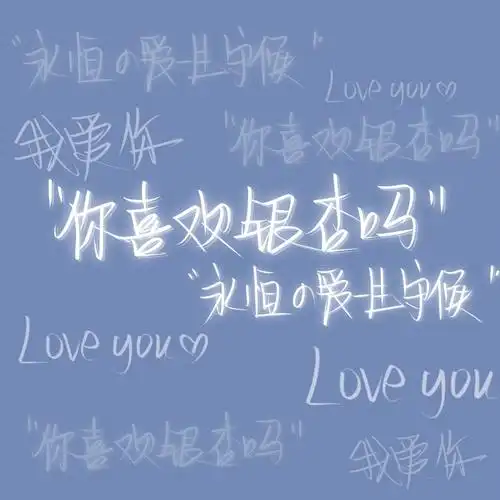 "永恒の爱与守候"
Love you♡
我爱你
"你喜欢银杏吗"
"你喜欢银杏吗"
"永恒の爱与守候"
Love you♡
Love you
"你喜欢银杏吗"
我爱你